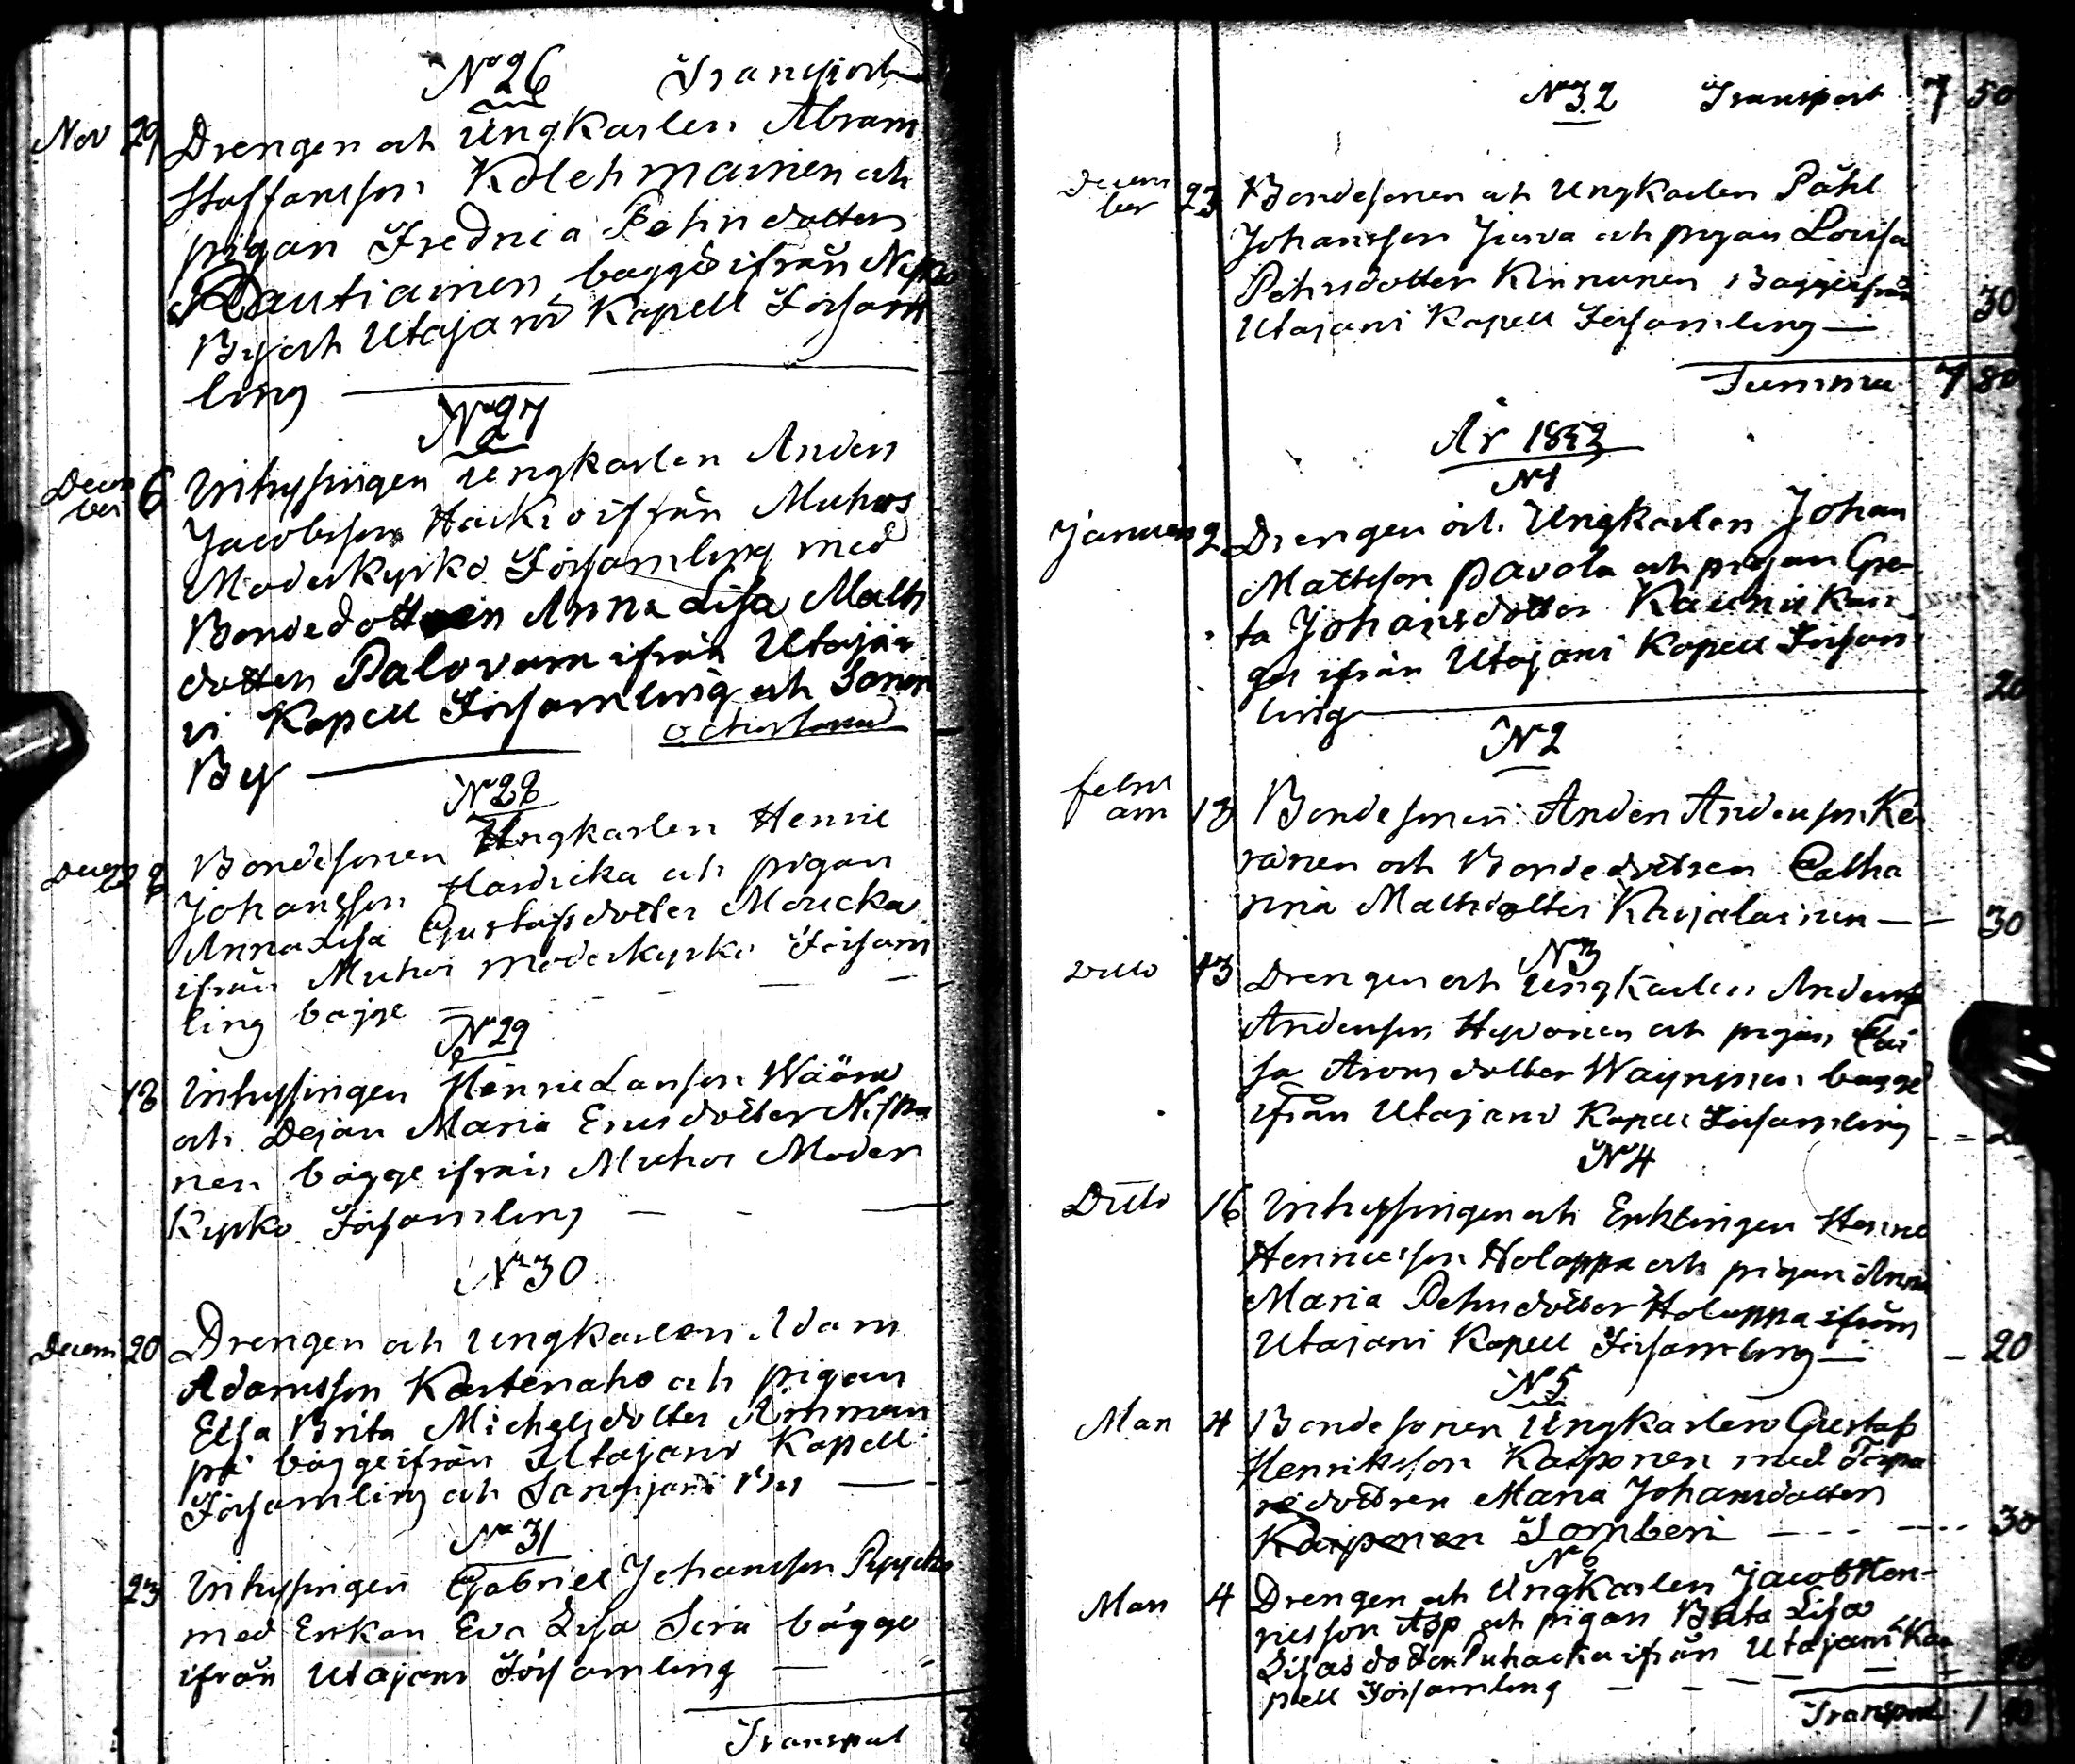 No 26 Transport
Nov 29 Drengen och Ungkarlen Abram
Staffansson Kolehmainen och
pigan Fredrica Petersdotter
Rautiainen bägge ifrån Nispa
By och Utajärvi Kapell Församl
ling
No 27
Decem
ber 6 Inhysingen Ungkarlen Anders
Jacobsson Haikio ifrån Muhos
Moderkyrko Församling med
Bondedottren Anna Lisa Matts
dotter Palovaara ifrån Utajär
vi Kapell Församling och Sangin
By
No 28
Decem
ber 8 Bondesonen Ungkarlen Henric
Johansson Hardicka och pigan
Anna Lisa Gustafsdotter Moucka
ifrån Muhos moderkyrko Försam
ling bägge
No 29
18 Inhysingen Henric Larsson Wääne
och Dejan Maria Ersdotter Niska
nen bägge ifrån Muhos Moder
Kyrko Församling
No 30
Decem 20 Drengen och Ungkarlen Adam
Adamsson Kortenaho och pigan
Elsa Brita Michelsdotter Ämmän
pä bägge ifrån Utajärvi Kapell
Församling och Sanginjoki By
No 31
23 Inhysingen Gabriel Johansson
med Enkan Eva Lisa Sirä bägge
ifrån Utajärvi Församling
Transport
No 32 Transport 7 50
Decem
ber 23 Bondesonen och Ungkarlen Påhl
Johansson Jurva och pigan Lovisa
Petersdotter Kinnunen Bägge ifrån
Utajärvi Kapell Församling — 30
Summa 7 80
År 1853
No 1
Januari 2 Drengen och Ungkarlen Johan
Mattsson Pavola och pigan Gre-
ta Johansdotter Kaunis Kan
gas ifrån Utajärvi Kapell Försam
ling 20
No 2
Febru
ari 13 Bondesonen Anders Andersson Ke
ränen och Bondedottren Catha
rina Mattsdotter Karjalainen — 30
No 3
Ditto 13 Drengen och Ungkarlen Anders
Andersson Hyvönen och pigan Cai
sa Aronsdotter Wäyrynen bägge
ifrån Utajärvi Kapell Församling
No 4
Ditto 16 Inhysingen och Enklingen Henric
Henricsson Holappa och pigan Anna
Maria Petersdotter Holappa ifrån
Utajärvi Kapell Församling — 20
No 5
Mars 4 Bondesonen Ungkarlen Gustaf
Henriksson Kaiponen med Torpa
redottren Maria Johansdotter
Kaiponen Tomberi 30
No 6
Mars 4 Drengen och Ungkarlen Jacob Hen-
ricsson Asp och pigan Brita Lisa
Lisasdotter Puhacka ifrån Utajärvi Ka
pell Församling
Transport 1